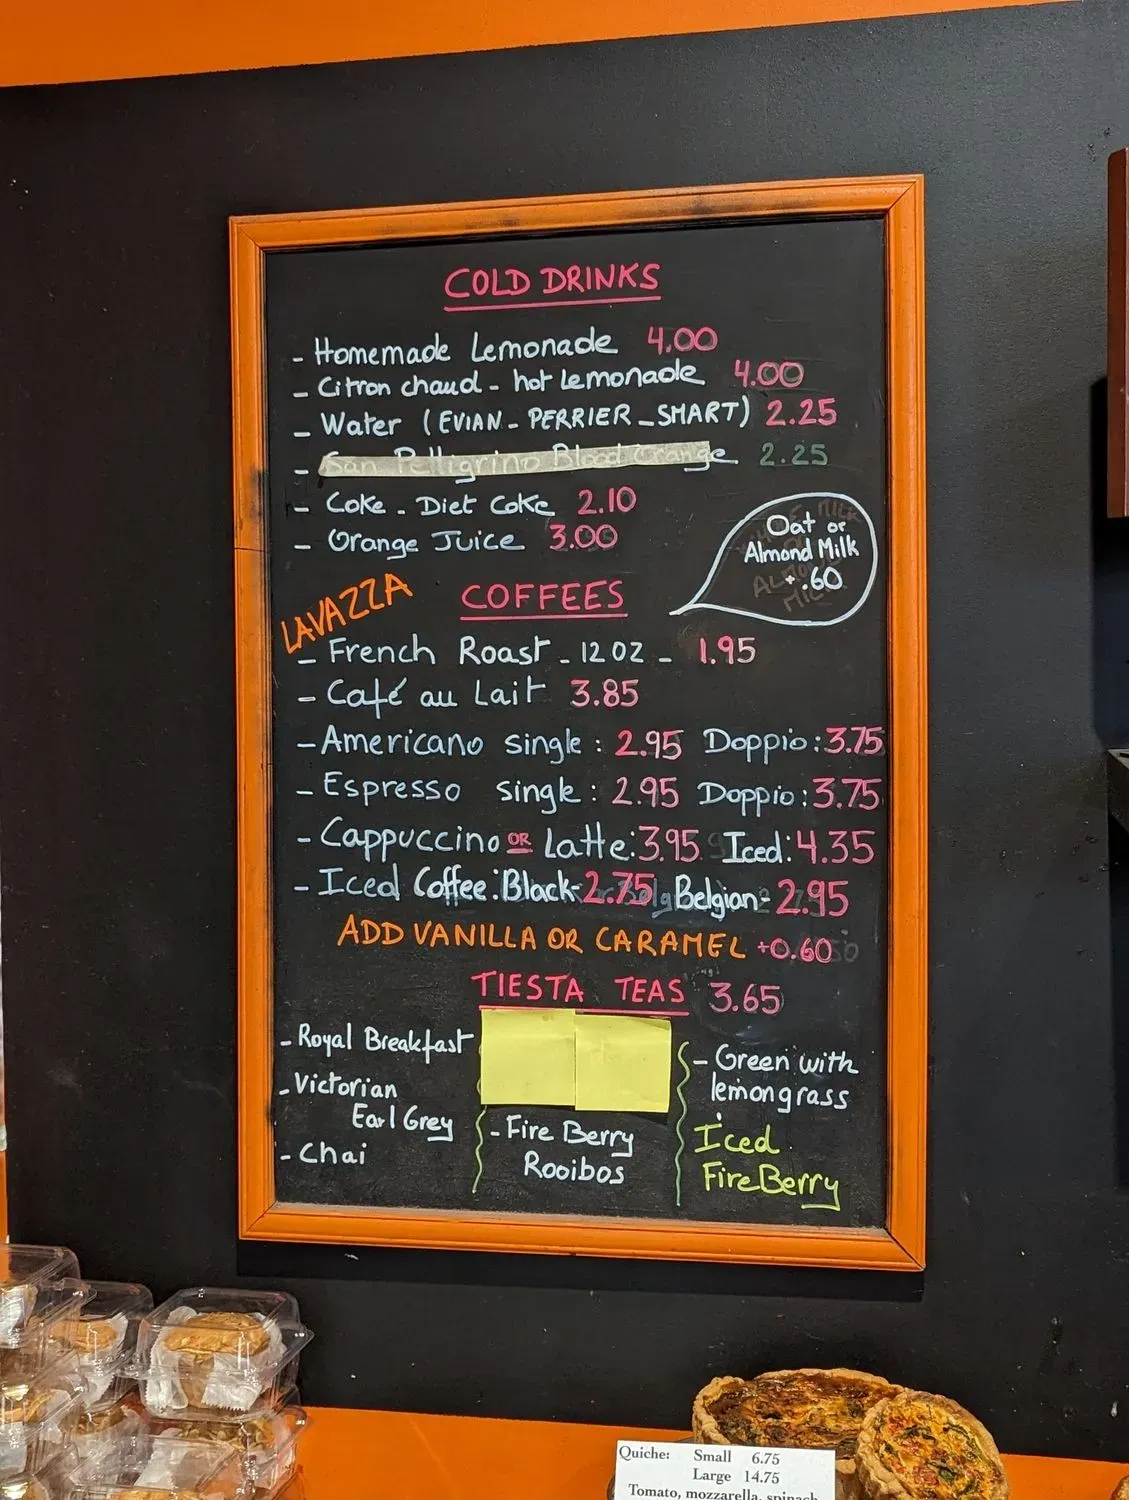 COLD DRINKS
- Homemade Lemonade 4.00
- Citron chaud - hot Lemonade 4.00
- Water (EVIAN - PERRIER - SMART) 2.25
- San Pelligrino Blood Orange 2.25
- Coke - Diet Coke 2.10
- Orange Juice 3.00
Oat or
Almond Milk
+.60
LAVAZZA
COFFEES
- French Roast - 12 OZ - 1.95
- Café au Lait 3.85
- Americano single: 2.95 Doppio: 3.75
- Espresso single: 2.95 Doppio: 3.75
- Cappuccino OR Latte: 3.95 Iced: 4.35
- Iced Coffee: Black - 2.75 Belgian - 2.95
ADD VANILLA OR CARAMEL +0.60
TIESTA TEAS 3.65
- Royal Breakfast
- Victorian
Earl Grey
- Chai
- Fire Berry
Rooibos
- Green with
lemongrass
Iced
FireBerry
Quiche: Small 6.75
Large 14.75
Tomato, mozzarella, spinach